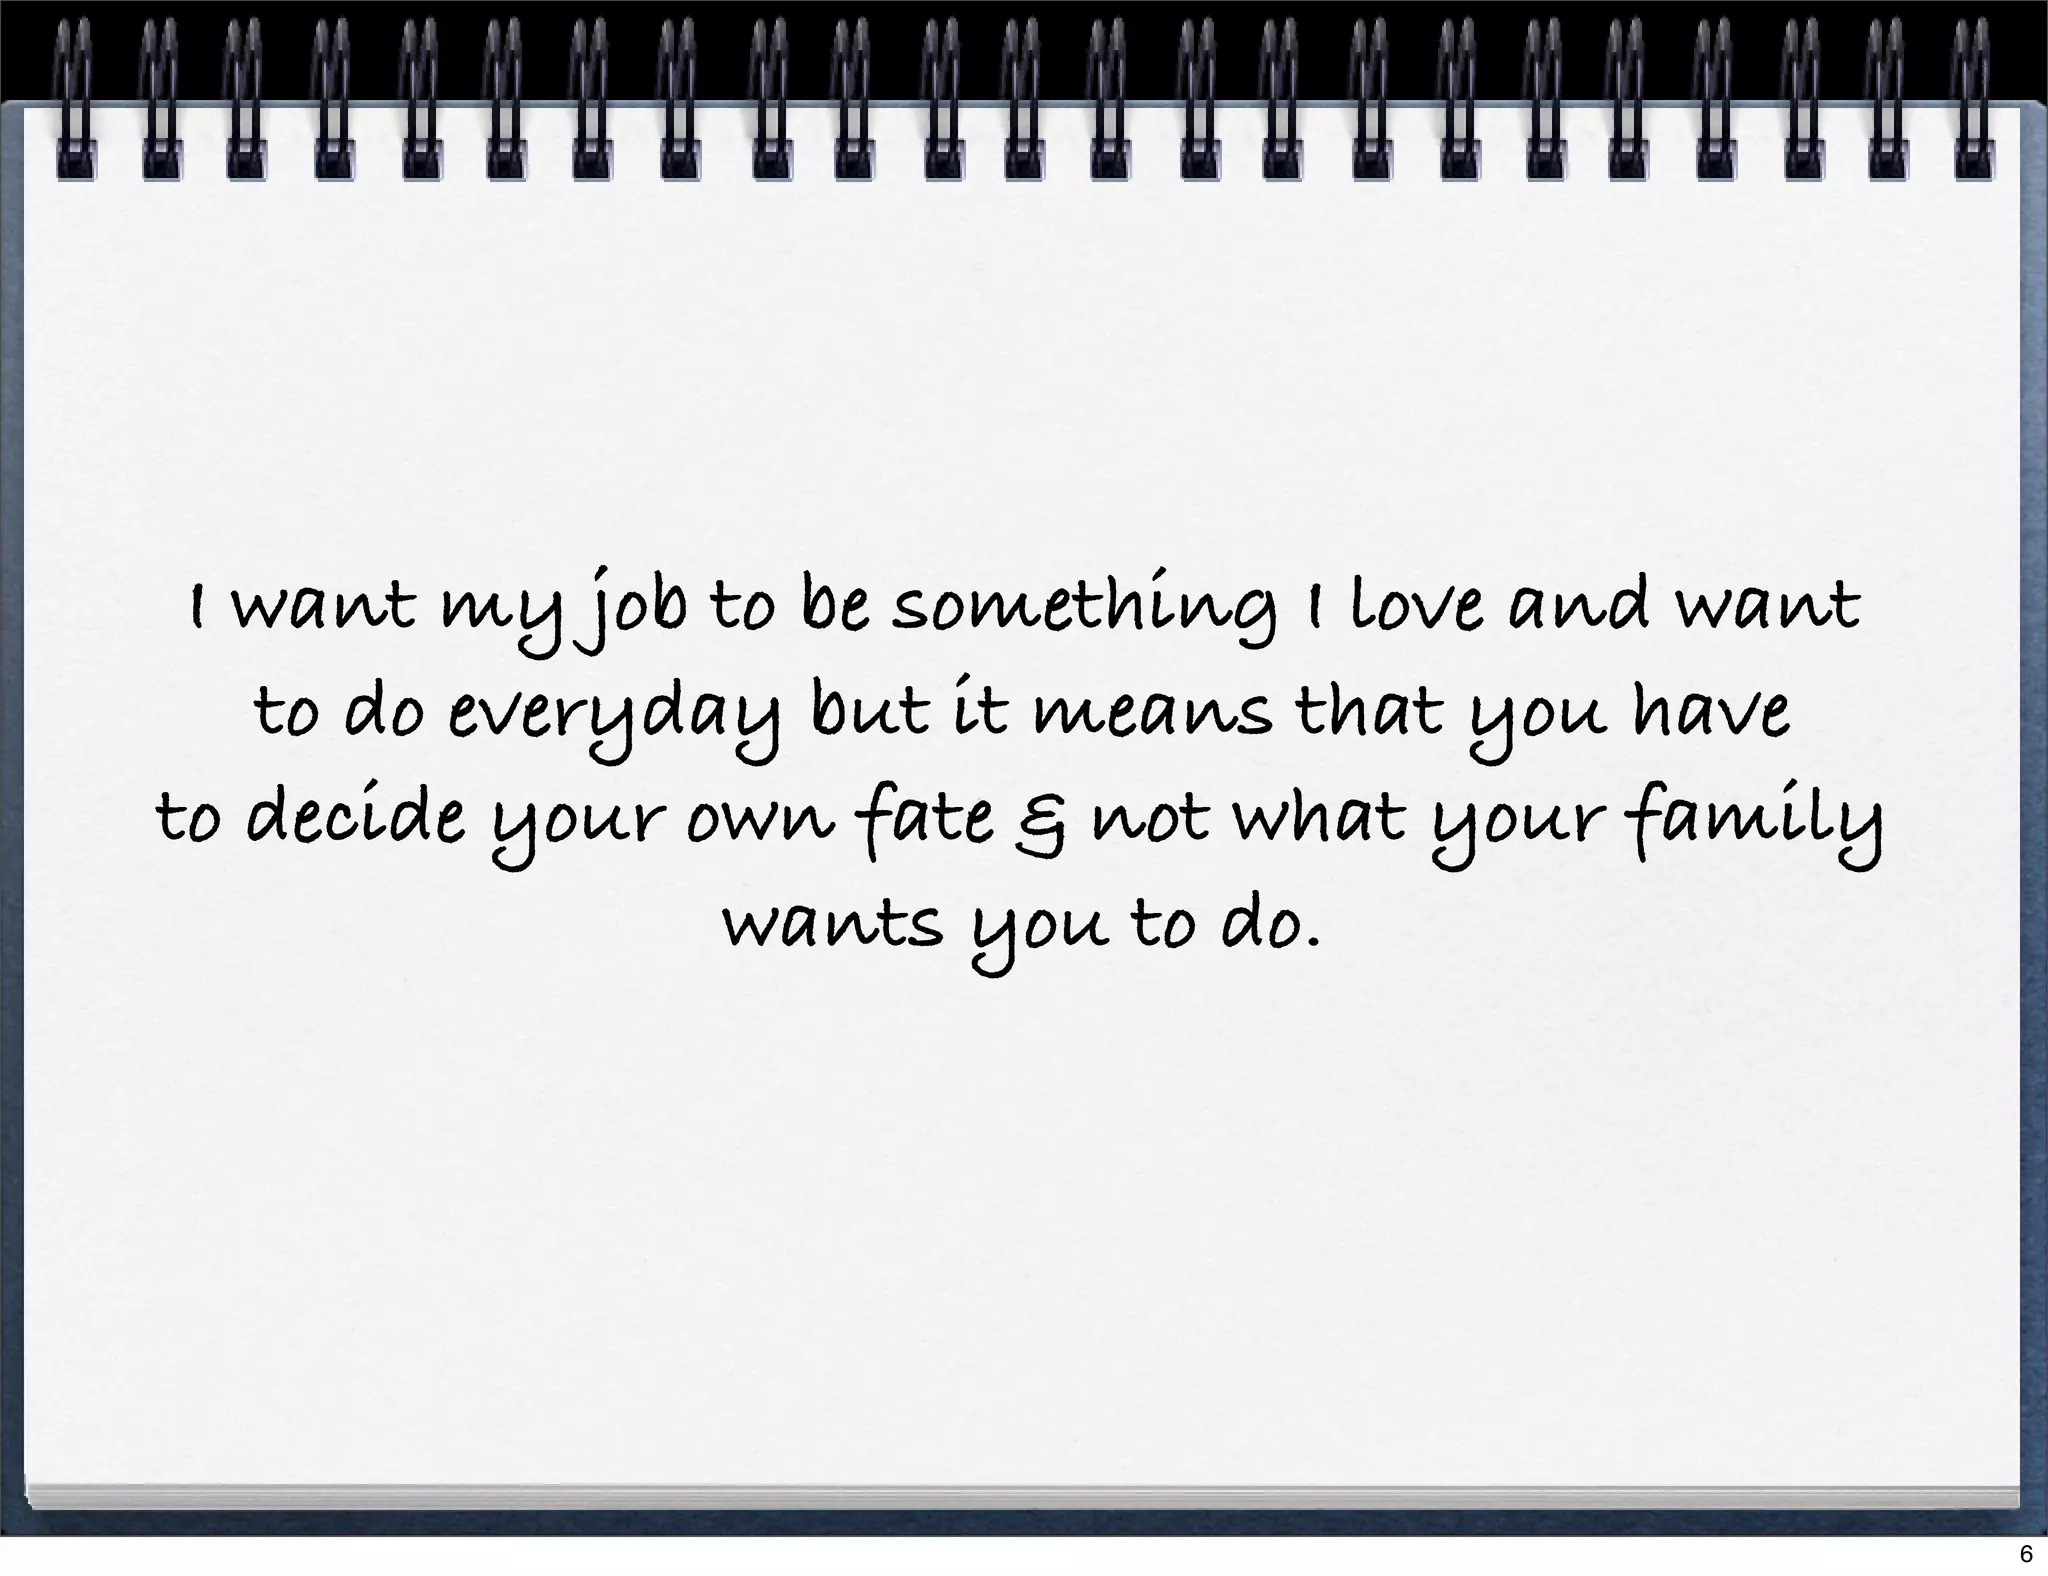 I want my job to be something I love and want
to do everyday but it means that you have
to decide your own fate & not what your family
wants you to do.
6